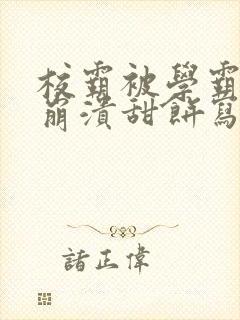 校霸被學霸
崩潰甜餅寫
諸正偉